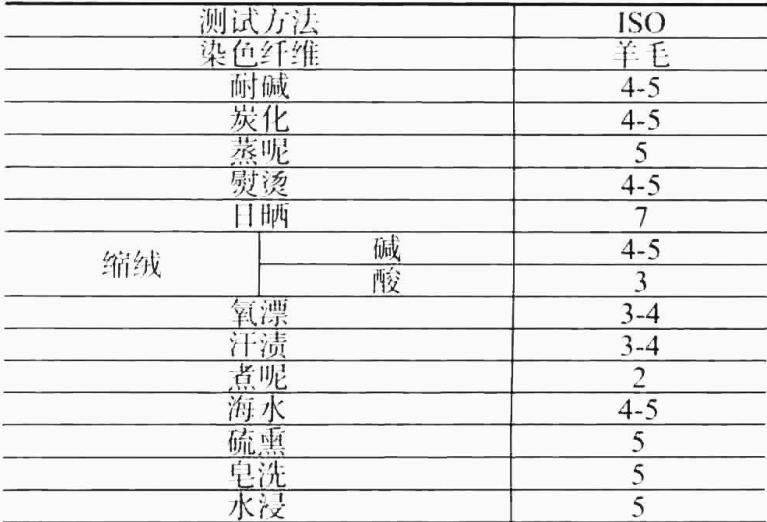 测试方法 ISO
染色纤维 羊毛
耐碱 4-5
炭化 4-5
蒸呢 5
熨烫 4-5
日晒 7
缩绒 碱 4-5
酸 3
氧漂 3-4
汗渍 3-4
煮呢 2
海水 4-5
硫熏 5
皂洗 5
水浸 5